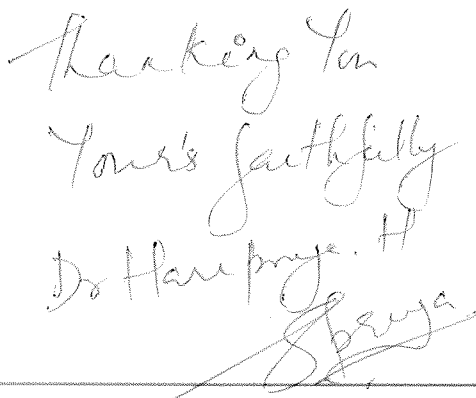 Thanking You
Your's faithfully
Dr Haripriya. H